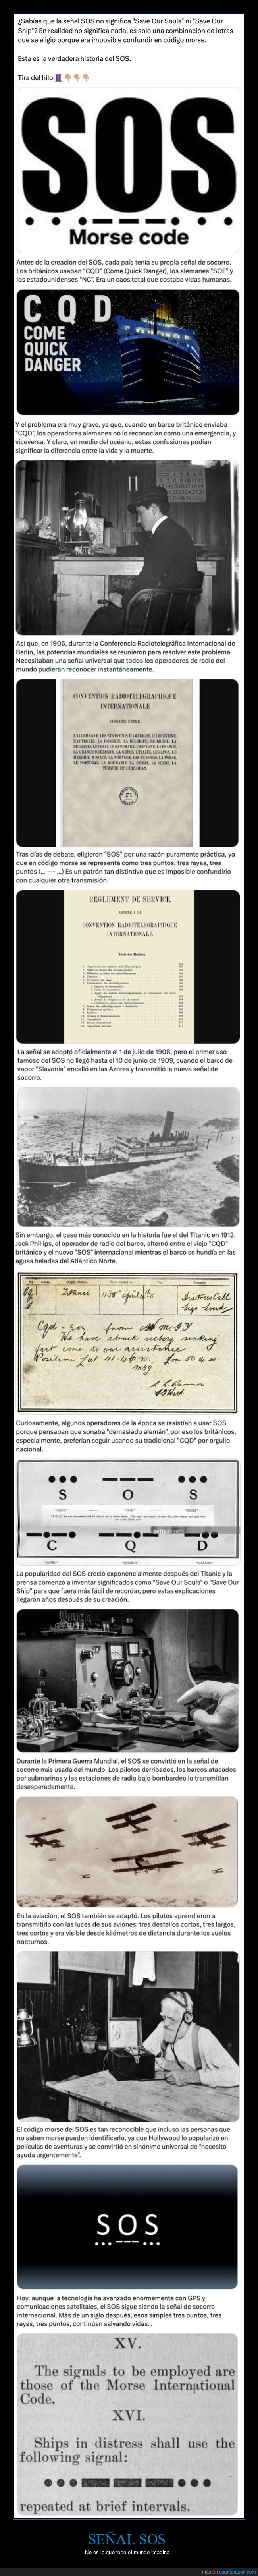 ¿Sabías que la señal SOS no significa "Save Our Souls" ni "Save Our
Ship"? En realidad no significa nada, es solo una combinación de letras
que se eligió porque era imposible confundir en código morse.
Esta es la verdadera historia del SOS.
Tira del hilo
SOS
Morse code
Antes de la creación del SOS, cada país tenía su propia señal de socorro.
Los británicos usaban "CQD" (Come Quick Danger), los alemanes "SOE" y
los estadounidenses "NC". Era un caos total que costaba vidas humanas.
C Q D
COME
QUICK
DANGER
Y el problema era muy grave, ya que, cuando un barco británico enviaba
"CQD", los operadores alemanes no lo reconocían como una emergencia, y
viceversa. Y claro, en medio del océano, estas confusiones podían
significar la diferencia entre la vida y la muerte.
Así que, en 1906, durante la Conferencia Radiotelegráfica Internacional de
Berlín, las potencias mundiales se reunieron para resolver este problema.
Necesitaban una señal universal que todos los operadores de radio del
mundo pudieran reconocer instantáneamente.
CONVENTION RADIOTÉLÉGRAPHIQUE
INTERNATIONALE
CONCLUE ENTRE
Tras días de debate, eligieron "SOS" por una razón puramente práctica, ya
que en código morse se representa como tres puntos, tres rayas, tres
puntos (... --- ...) Es un patrón tan distintivo que es imposible confundirlo
con cualquier otra transmisión.
RÈGLEMENT DE SERVICE,
ANNEXÉ À LA
CONVENTION RADIOTÉLÉGRAPHIQUE
INTERNATIONALE.
Table des Matières.
La señal se adoptó oficialmente el 1 de julio de 1908, pero el primer uso
famoso del SOS no llegó hasta el 10 de junio de 1909, cuando el barco de
vapor "Slavonia" encalló en las Azores y transmitió la nueva señal de
socorro.
Sin embargo, el caso más conocido en la historia fue el del Titanic en 1912.
Jack Phillips, el operador de radio del barco, alternó entre el viejo "CQD"
británico y el nuevo "SOS" internacional mientras el barco se hundía en las
aguas heladas del Atlántico Norte.
Titanic
Distress Call
Cqd - Sos from M.G.Y
We have struck iceberg sinking
fast come to our assistance
Position Lat 41.46 n.
Curiosamente, algunos operadores de la época se resistían a usar SOS
porque pensaban que sonaba "demasiado alemán", por eso los británicos,
especialmente, preferían seguir usando su tradicional "CQD" por orgullo
nacional.
S O S
C Q D
La popularidad del SOS creció exponencialmente después del Titanic y la
prensa comenzó a inventar significados como "Save Our Souls" o "Save Our
Ship" para que fuera más fácil de recordar, pero estas explicaciones
llegaron años después de su creación.
Durante la Primera Guerra Mundial, el SOS se convirtió en la señal de
socorro más usada del mundo. Los pilotos derribados, los barcos atacados
por submarinos y las estaciones de radio bajo bombardeo lo transmitían
desesperadamente.
En la aviación, el SOS también se adaptó. Los pilotos aprendieron a
transmitirlo con las luces de sus aviones: tres destellos cortos, tres largos,
tres cortos y era visible desde kilómetros de distancia durante los vuelos
nocturnos.
El código morse del SOS es tan reconocible que incluso las personas que
no saben morse pueden identificarlo, ya que Hollywood lo popularizó en
películas de aventuras y se convirtió en sinónimo universal de "necesito
ayuda urgentemente".
SOS
... --- ...
Hoy, aunque la tecnología ha avanzado enormemente con GPS y
comunicaciones satelitales, el SOS sigue siendo la señal de socorro
internacional. Más de un siglo después, esos simples tres puntos, tres
rayas, tres puntos, continúan salvando vidas...
XV.
The signals to be employed are
those of the Morse International
Code.
XVI.
Ships in distress shall use the
following signal:
repeated at brief intervals.
SEÑAL SOS
No es lo que todo el mundo imagina
más en cuantarazon.com